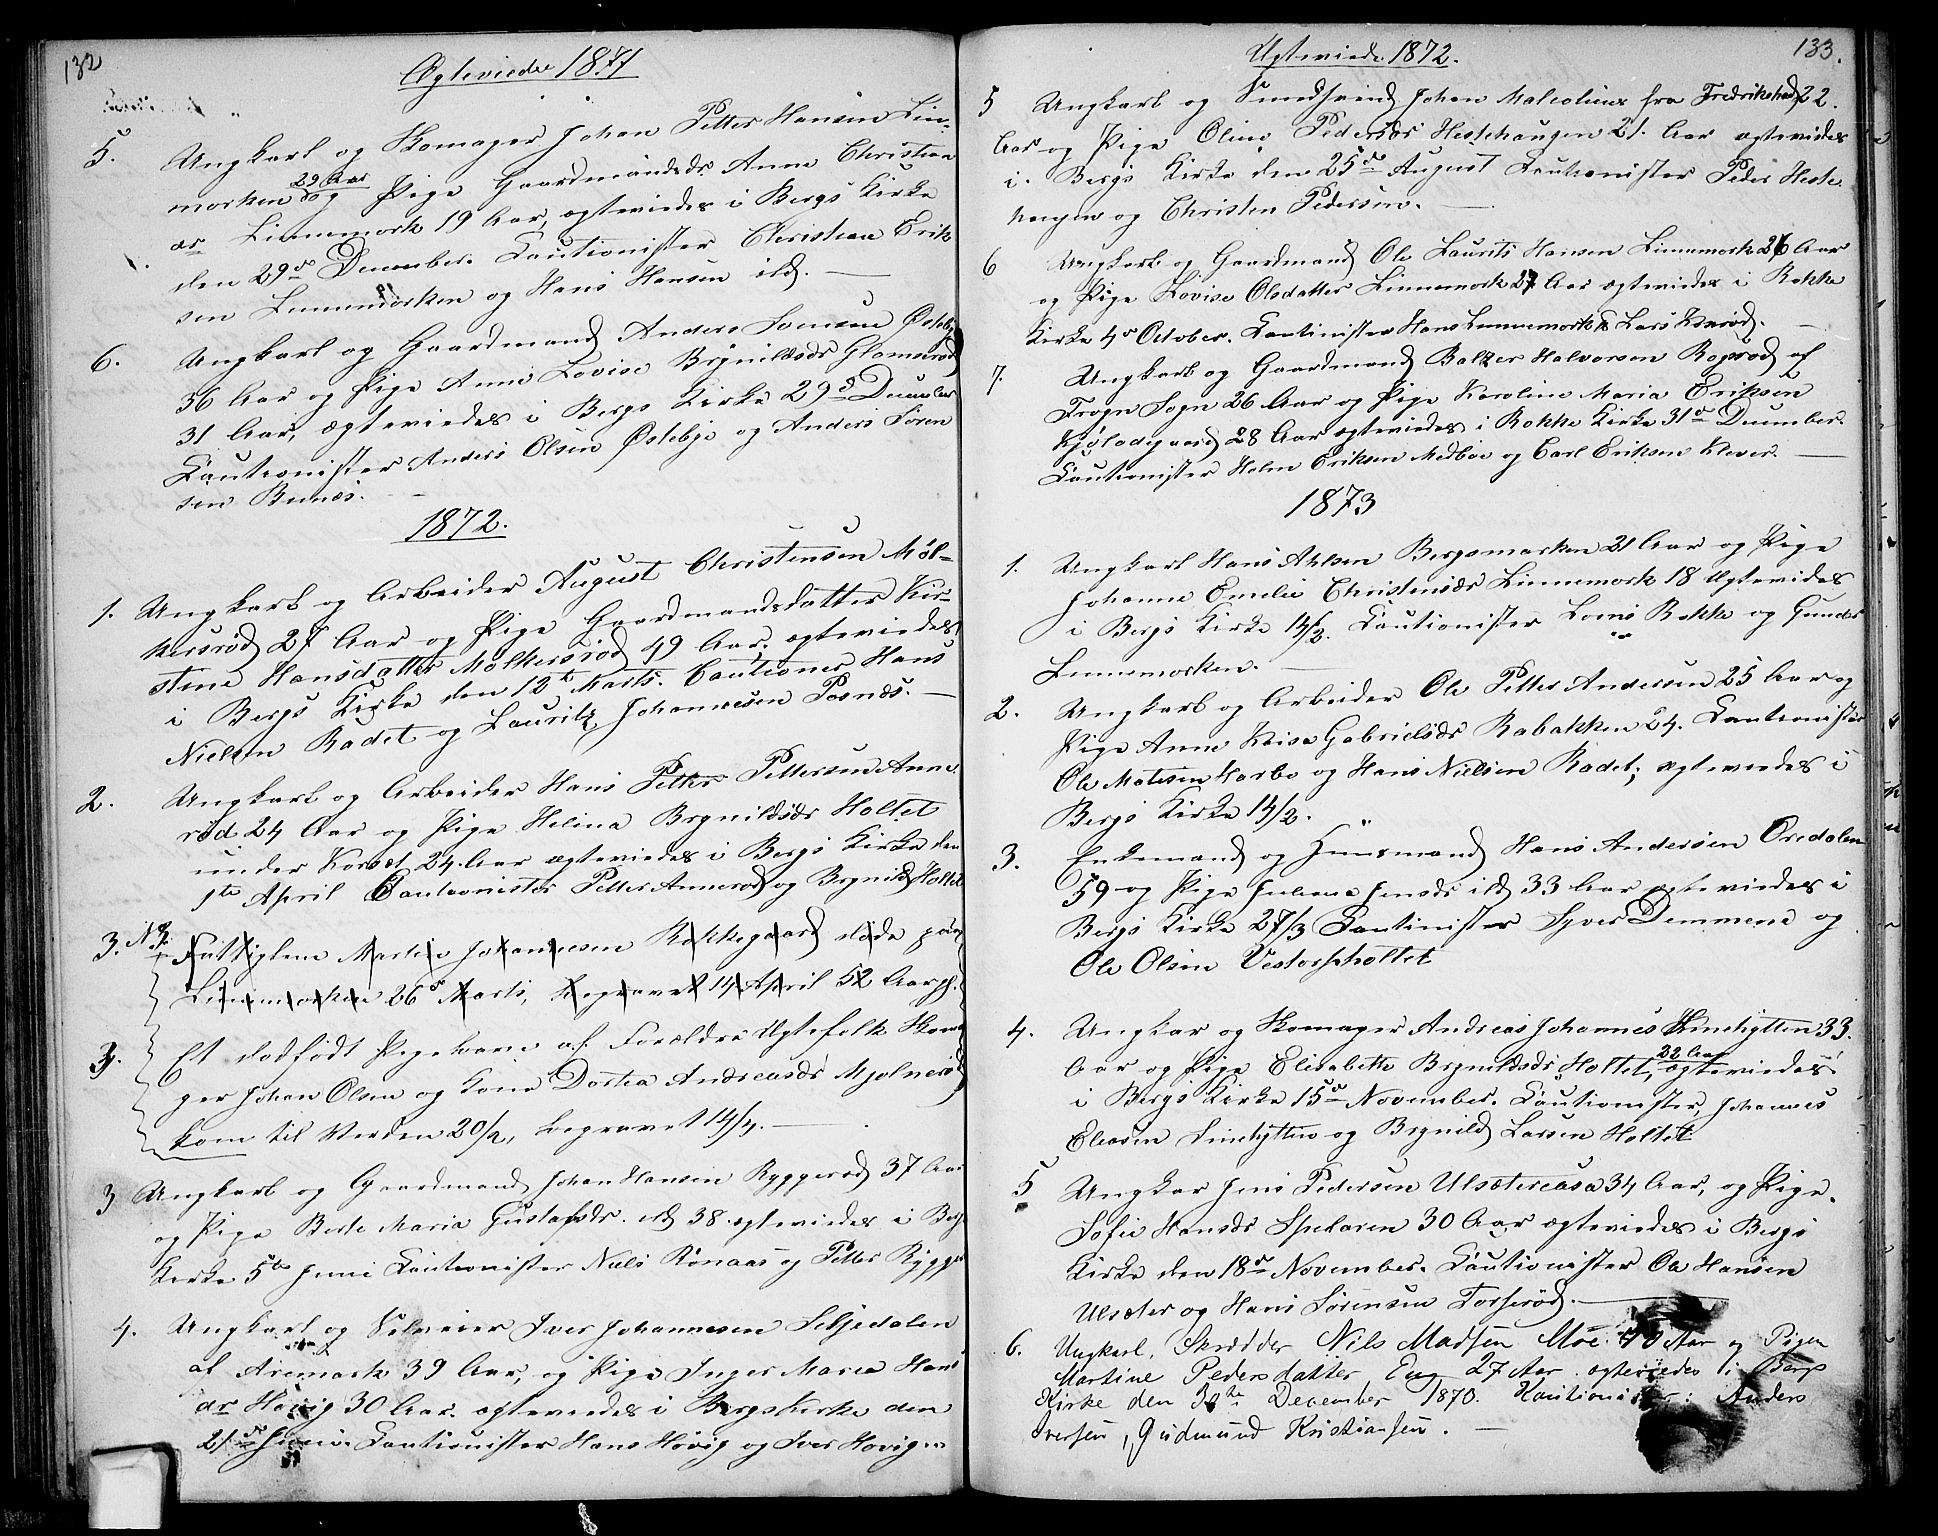 132
Ægteviede 1871
5. Ungkarl og Skomager Johan Petter Hansen Lin-
morken 29 Aar og Pige Gaardmandsdr. Anne Christian
dr Linnemork 19 Aar, ægteviedes i Bergs Kirke
den 29de December. Cautionister Christian Erik
sen Linnemorken og Hans Hansen ibd. —
6. Ungkarl og Gaardmand Anders Svensen Østeby
36 Aar og Pige Anne Lovise Brynildsdr Glomsrød
31 Aar, ægteviedes i Bergs Kirke 29de December
Cautionister Anders Olsen Østebye og Anders Søren
sen
1872.
1. Ungkarl og Arbeider August Christensen Møl-
kersrød 27 Aar og Pige Gaardmandsdatter Kir-
stine Hansdatter Mølkersrød 49 Aar, ægteviedes
i Bergs Kirke den 12te Marts. Cautioner Hans
Nielsen Radet og Lauritz Johannesen
2. Ungkarl og Arbeider Hans Petter Pettersen Anne
rød 24 Aar og Pige Helina Brynildsdr Holtet
under Korsæt 24 Aar ægteviedes i Bergs Kirke den
1te April Cautionister Petter Annerød og Brynild Holtet
3. No 3. Fattiglem Martin Johannesen Rokkegaard døde paa
Linnemorken 26de Marts, begravet 14 April 52 Aar gl.
3. Et dødfødt Pigebarn af Forældre Ægtefolk Skoma
ger Johan Olsen og Kone Dortea Andreasdr Mjølnerød
kom til Verden 20/2, begravet 14/4. —
3 Ungkarl og Gaardmand Johan Hansen Ryggerød 37 Aar
og Pige Berte Maria Gustafsdr. ibd 38 ægteviedes i Bergs
Kirke 5te Juni Cautionister Niels Rønaas og Petter Rygge
4. Ungkarl og Selveier Iver Johannesen Skjedalen
af Aremark 39 Aar, og Pige Inger Maria Hans
dr Høvig 30 Aar. ægteviedes i Bergs Kirke den
21de Juni. Cautionister Hans Høvig og Iver Høvig.
Ægteviede 1872.
133.
5 Ungkarl og Johan Malcolines fra Fredrikshad, 22.
Aar og Pige Oline Pedersdr Hestehaugen 21. Aar ægteviedes
i. Bergs Kirke den 25de August Cautionister Peder Heste
haugen og Christen Pedersen. —
6 Ungkarl og Gaardmand Ole Laurits Hansen Linnemork 26 Aar
og Pige Lovise Olsdatter Linnemork 27 Aar ægteviedes i Rokke
Kirke 4de October. Cautinister Hans Linnemork & Lars
7. Ungkarl og Gaardmand Baltzer Halvorsen Rogsrød af
Trøgn Sogn 26 Aar og Pige Karoline Maria Eriksen
Kjølødegaard 28 Aar ægteviedes i Rokke Kirke 31de December.
Cautionister Holm Eriksen Medbøe og Carl Eriksen Klever. —
1873
1. Ungkarl Hans Ahlsen Bergsmarken 21 Aar og Pige
Johanne Emelie Christensdr Linnemork 18 Ægtevides
i Bergs Kirke 14/2. Cautionister Lorns Rokke og Gunder
Linnemorken. —
2. Ungkarl og Arbeider Ole Petter Andersen 25 Aar og
Pige Anne Kaisa Gabrielsdr Rabakken 24. Cautionister
Ole Matesen Karbo og Hans Nielsen Radet; ægteviedes i
Bergs Kirke 14/2.
3. Enkemand og Huusmand Hans Andersen Oredalen
59 og Pige Juliana Jensdr ibd 33 Aar ægteviedes i
Bergs Kirke 27/3 Cautinister Syver Demmene og
Ole Olsen Vestorpholtet
4. Ungkar og Skomager Andreas Johannes Linehytten 33.
Aar og Pige Elisabette Brynildsdr Holtet, 22 Aar ægteviedes
i Bergs Kirke 15de November. Cautionister, Johannes
Eliasen Linehytten og Brynild Larsen Holtet
5 Ungkar Jens Pedersen Ulsætereasa 34 Aar, og Pige.
Sofie Hansdr Spelaren 30 Aar ægteviedes i Bergs
Kirke den 18de November. Cautionister Ole Hansen
Ulsæter og Hans Sørensen Torperød. —
6. Ungkarl, Skrædder Nils Madsen Moe. 40 Aar og Pigen
Martine Pedersdatter Eng 27 Aar ægteviedes i Bergs
Kirke den 30te December 1870. Kautionister: Anders
Iversen, Gudmund Kristiansen. —